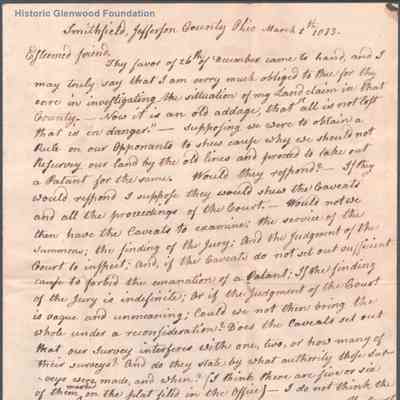 Historic Glenwood Foundation
Smithfield, Jefferson County Ohio March 1st, 1813.
Esteemed friend.
Thy favor of 26th of December came to hand, and I
may truly say that I am very much obliged to thee for thy
care in investigating the situation of my Land claim in that
County. — Now it is an old addage, that "all is not lost
that is in danger." — Supposing we were to obtain a
Rule on our Opponants to shew cause why we should not
Resurvey our land by the old lines and proceed to take out
a Patant for the same. Would they respond? — If they
would respond I suppose they would shew the Caveats
and all the proceedings of the Court; — Would not we
then have the Caveats to examine; the service of the
summons; the finding of the Jury; And the Judgment of the
Court to inspect; And, if the Caveats do not set out sufficient
cause to forbid the emanation of a Patant; If the finding
of the Jury is indefinite; Or if the Judgment of the Court
is vague and unmeaning; Could we not then bring the
whole under a reconsideration? Does the Caveats set out
that our Survey interferes with one, two, or how many of
their surveys? And do they state by what authority those Sur-
veys were made, and when? (I think there are five or six
of them on the plat filed in the Office) — I do not think the